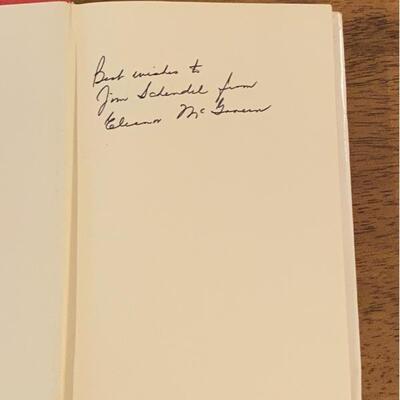 Best wishes to
Jim Schendel from
Eleanor McGovern